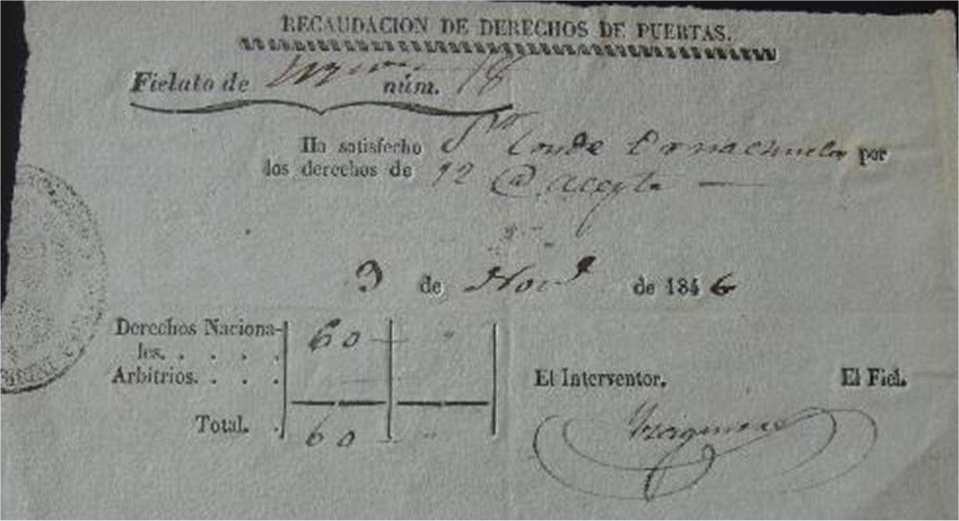 RECAUDACION DE DERECHOS DE PUERTAS.
Fielato de núm. 18
Ha satisfecho Sor Conde Ornachuelos por
los derechos de 12 @ aceyte —
3 de Nove de 1846
Derechos Naciona-
les. . . . . 60 — "
Arbitrios. . . .
El Interventor. El Fiel.
Total. . 60 — "